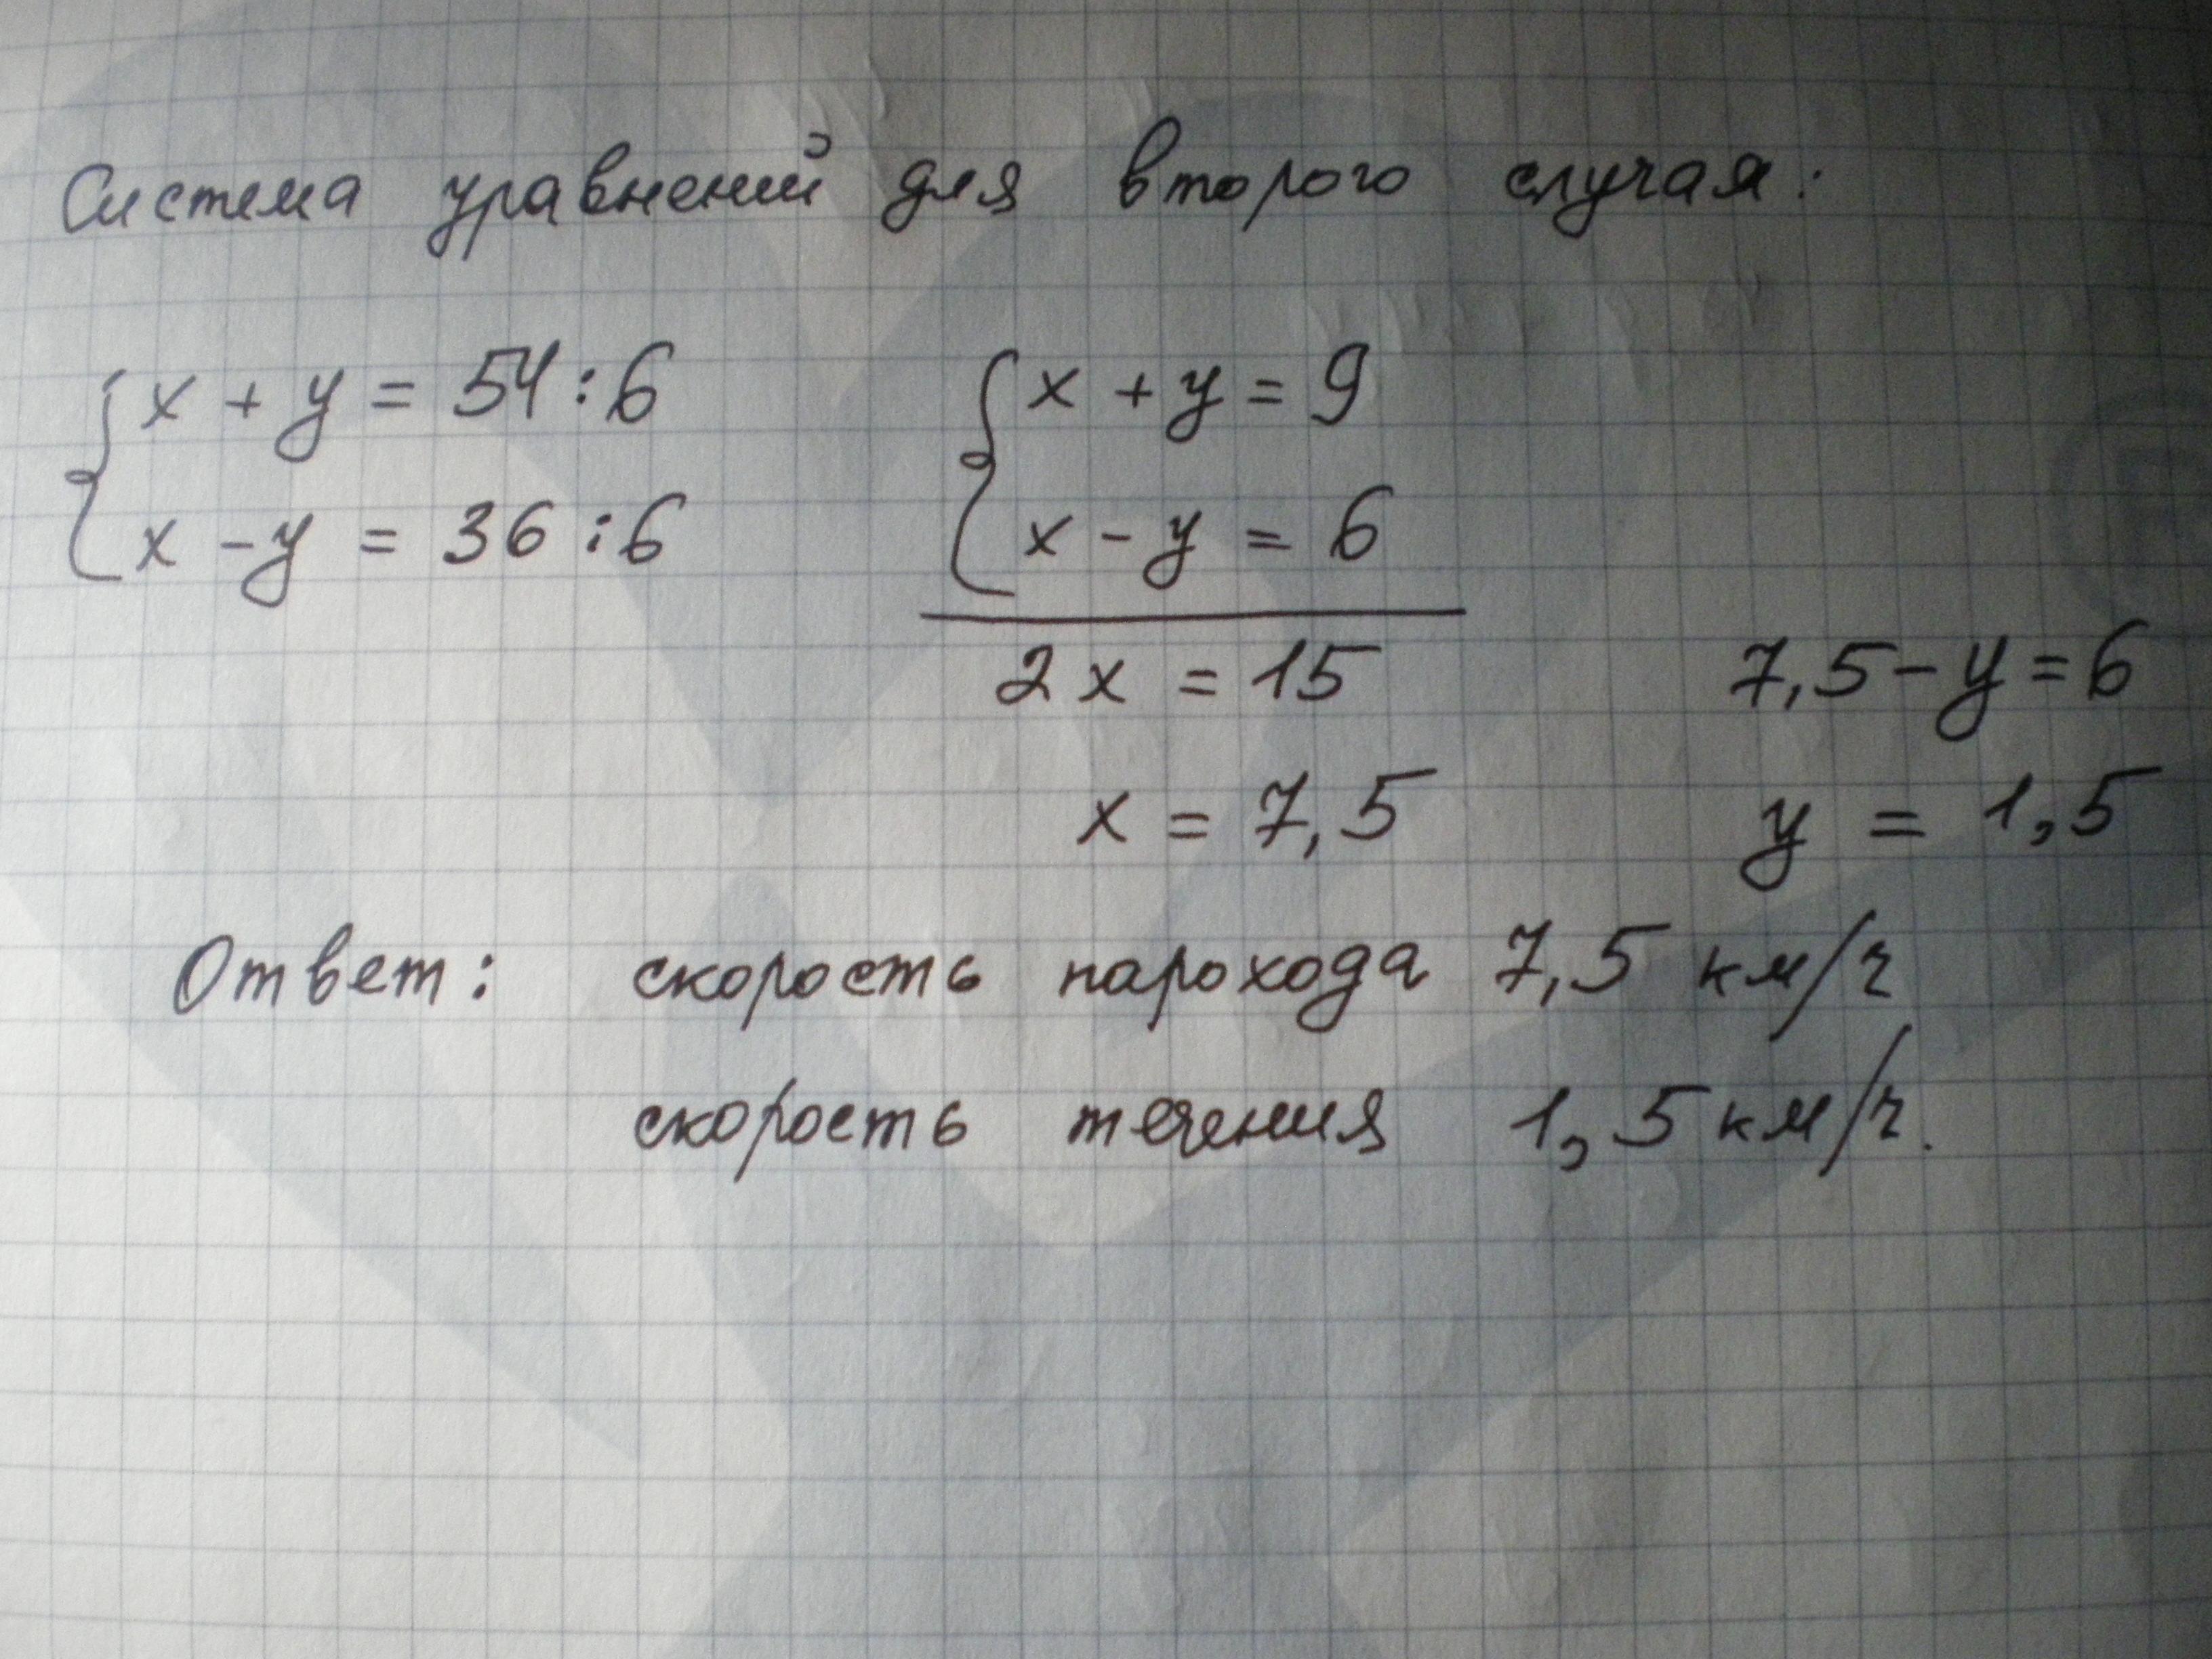 Система уравнений для второго случая:
{ x + y = 54 : 6 { x + y = 9
x - y = 36 : 6 x - y = 6
2x = 15 7,5 - y = 6
x = 7,5 y = 1,5
Ответ: скорость парохода 7,5 км/ч
скорость течения 1,5 км/ч.